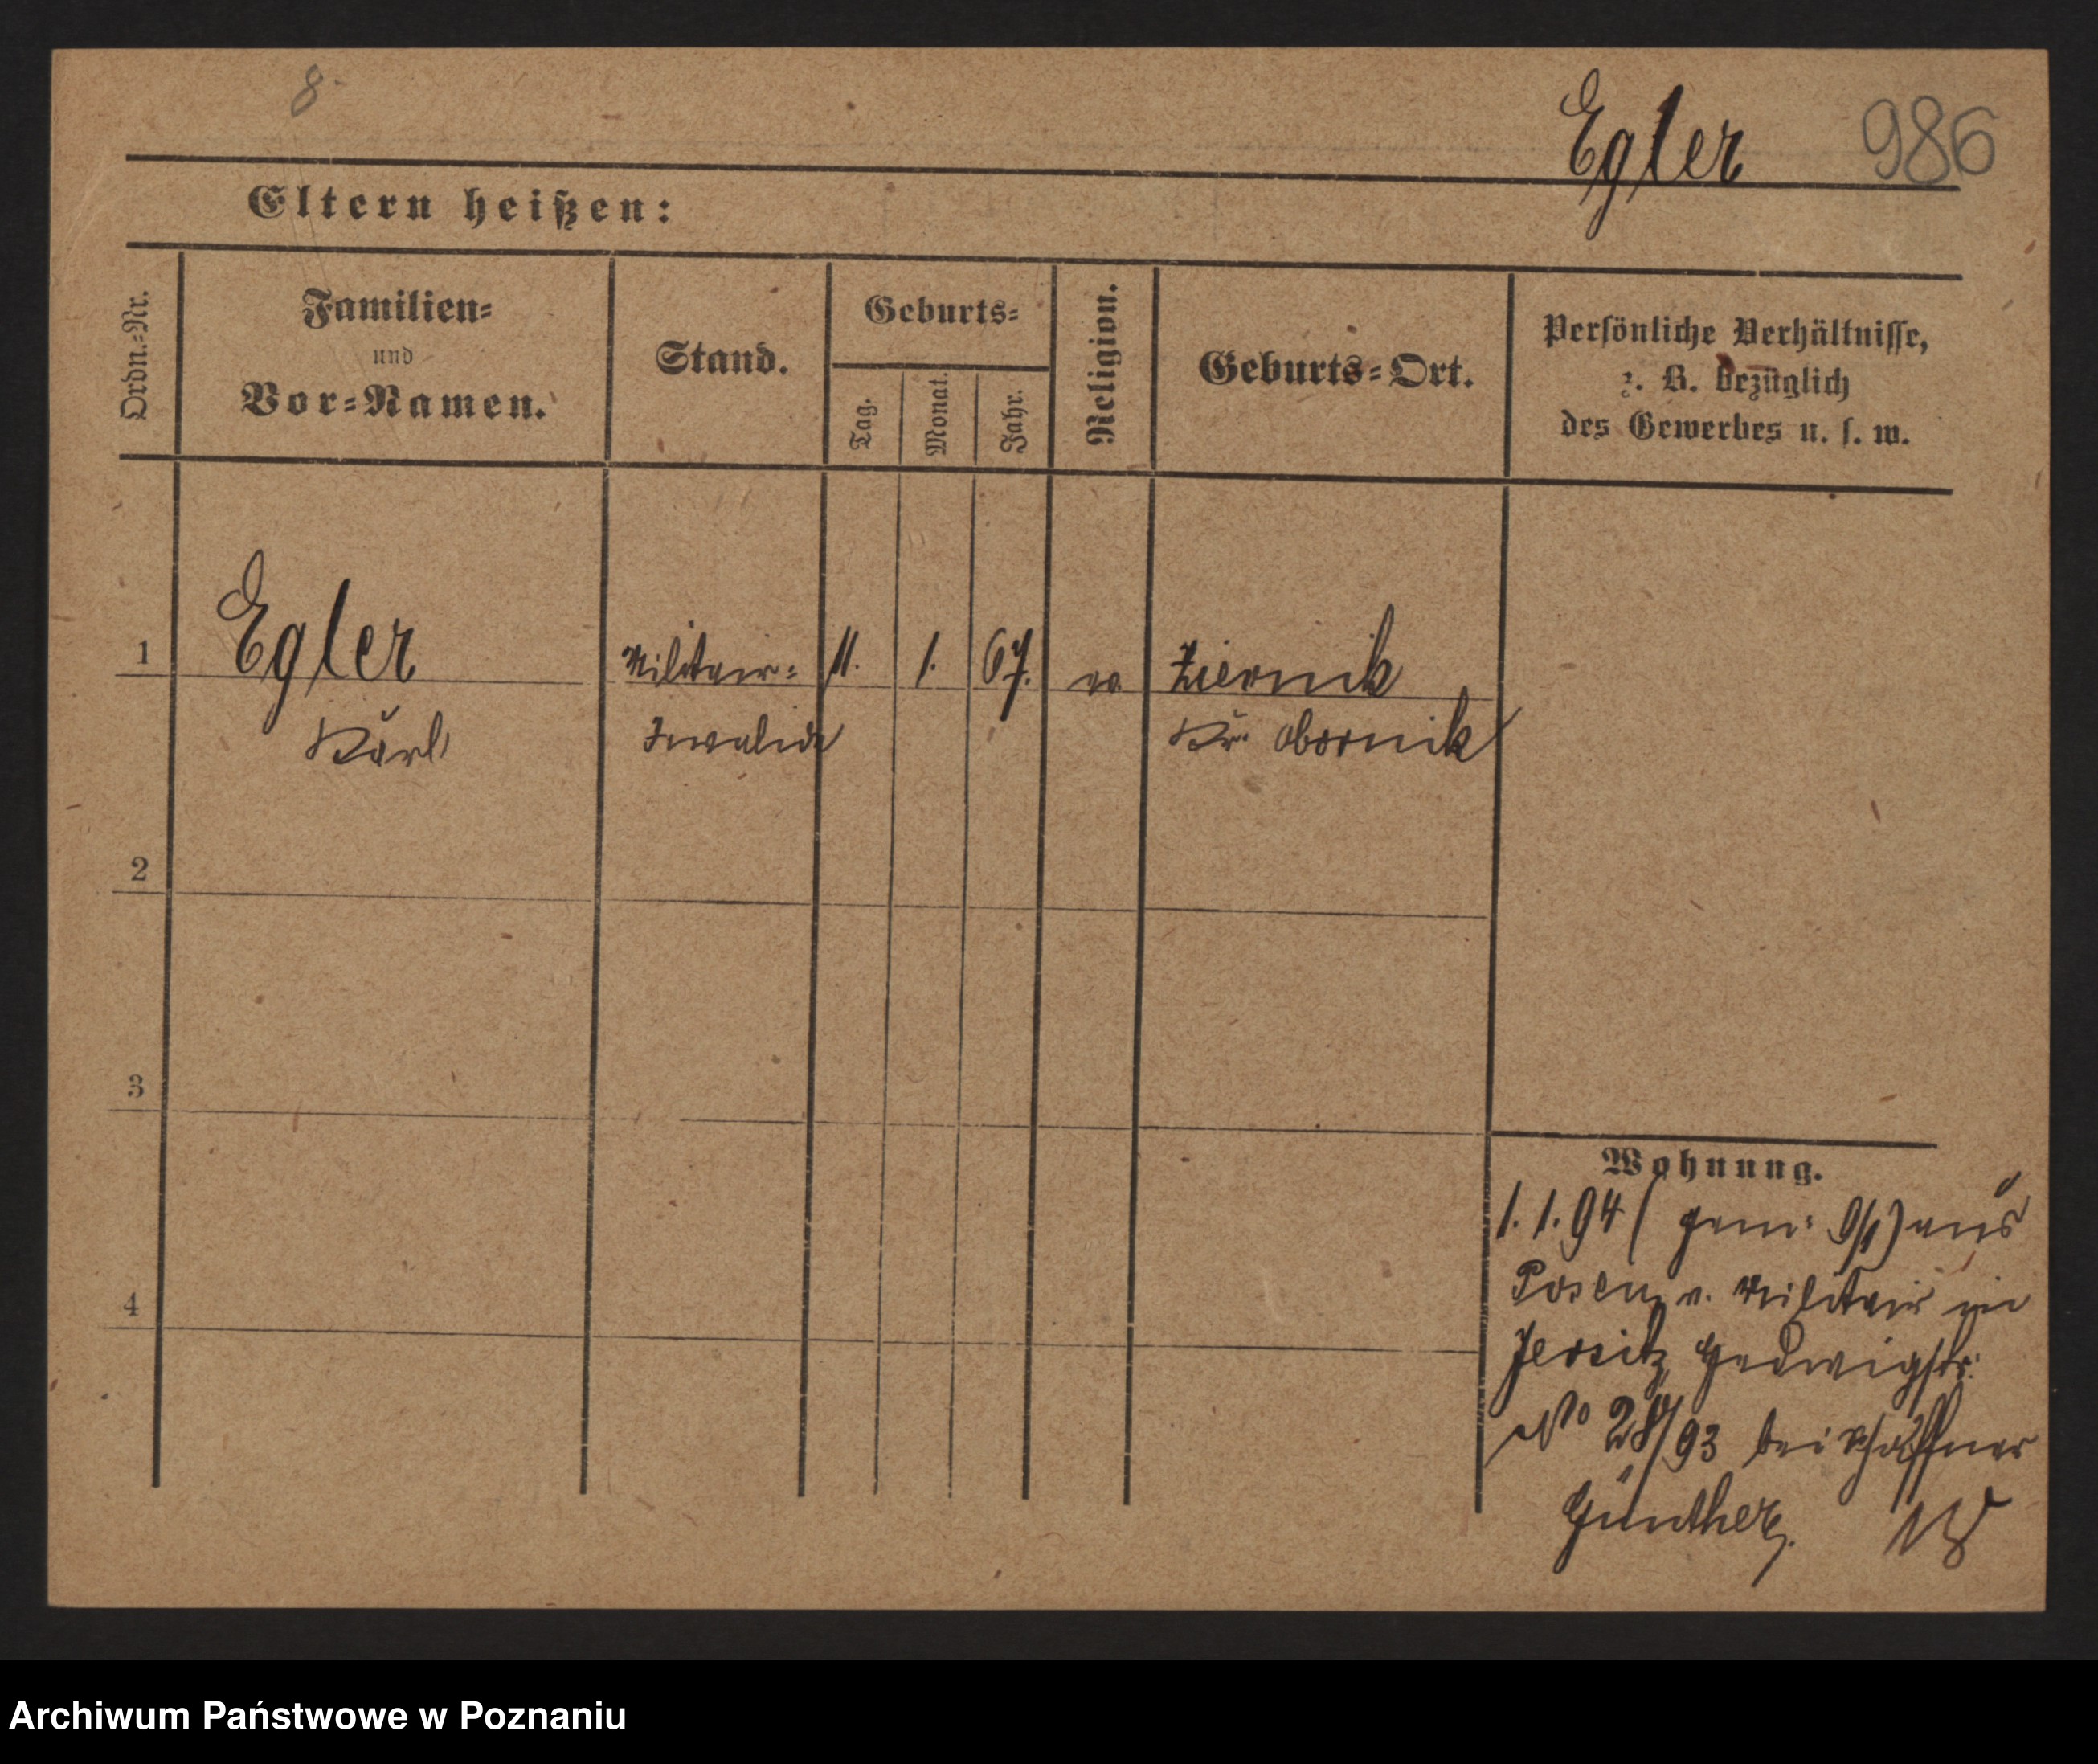 8.
Egler 986
Eltern heißen:
Ordn.-Nr.
Familien-
und
Vor-Namen.
Stand.
Geburts-
Tag.
Monat.
Jahr.
Religion.
Geburts-Ort.
Persönliche Verhältnisse,
z. B. bezüglich
des Gewerbes u. s. w.
1 Egler Militair- 11. 1. 67. ev Ziernik
Karl Invalide Kr. Obornik
2
3
4
Wohnung.
1. 1. 94 (gem: 9/1) aus
Posen, v. Militair in
Jersitz Hedwigstr:
No 28/93 bei Schaffner
Günther.
Archiwum Państwowe w Poznaniu